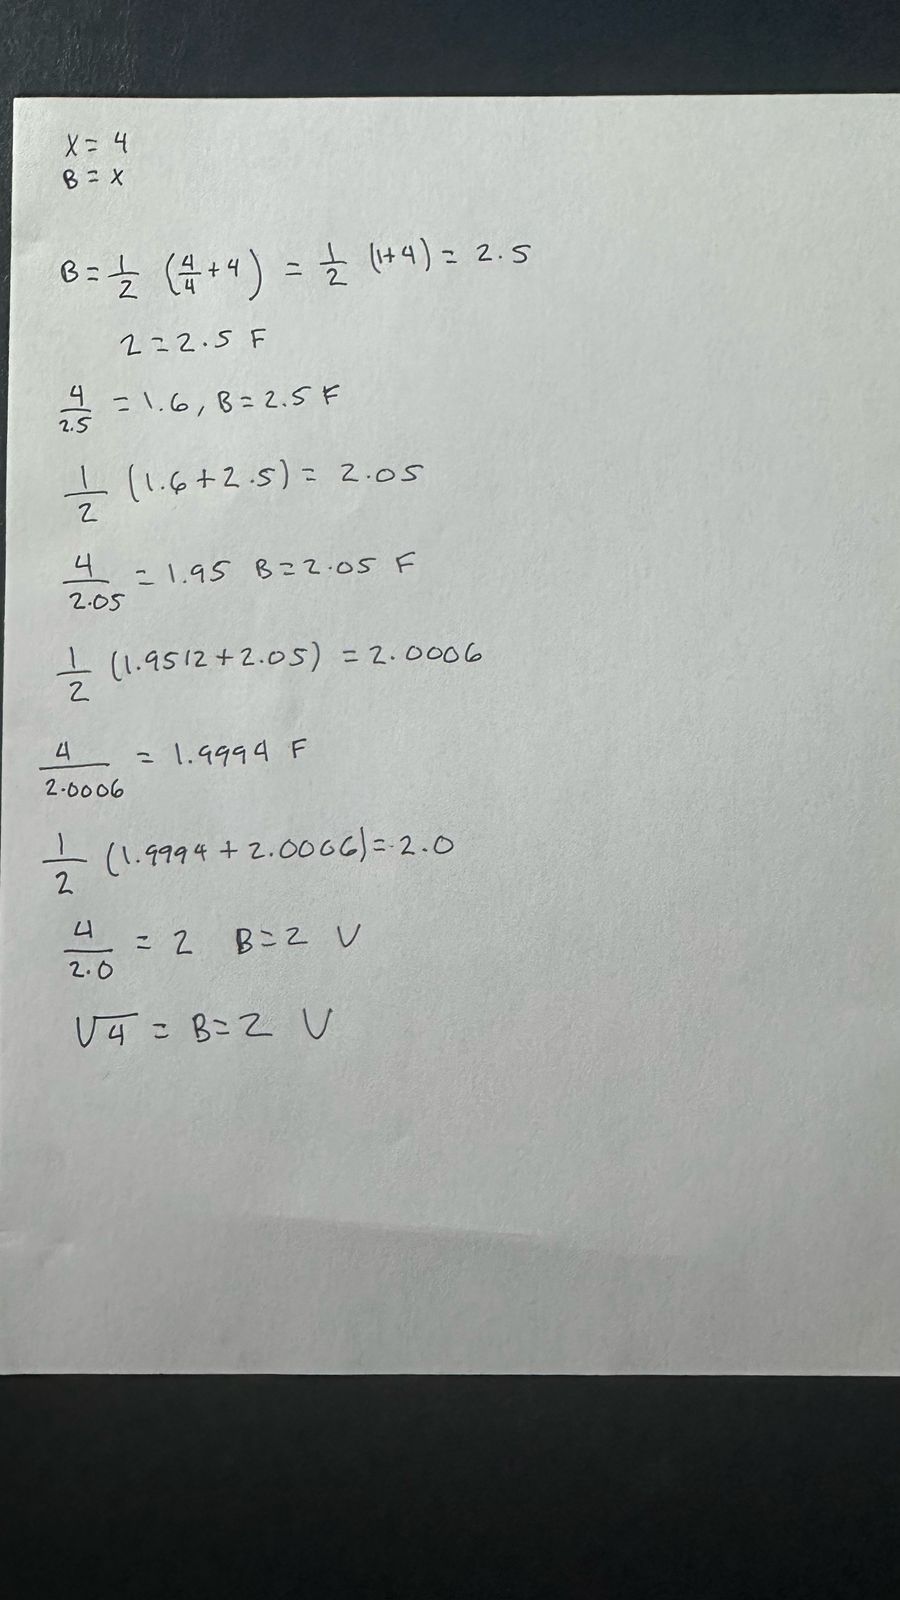 X = 4
B = X
B = 1/2 (4/4 + 4) = 1/2 (1+4) = 2.5
2 = 2.5 F
4/2.5 = 1.6, B = 2.5 F
1/2 (1.6 + 2.5) = 2.05
4/2.05 = 1.95 B = 2.05 F
1/2 (1.9512 + 2.05) = 2.0006
4/2.0006 = 1.9994 F
1/2 (1.9994 + 2.0006) = 2.0
4/2.0 = 2 B = 2 V
√4 = B = 2 V